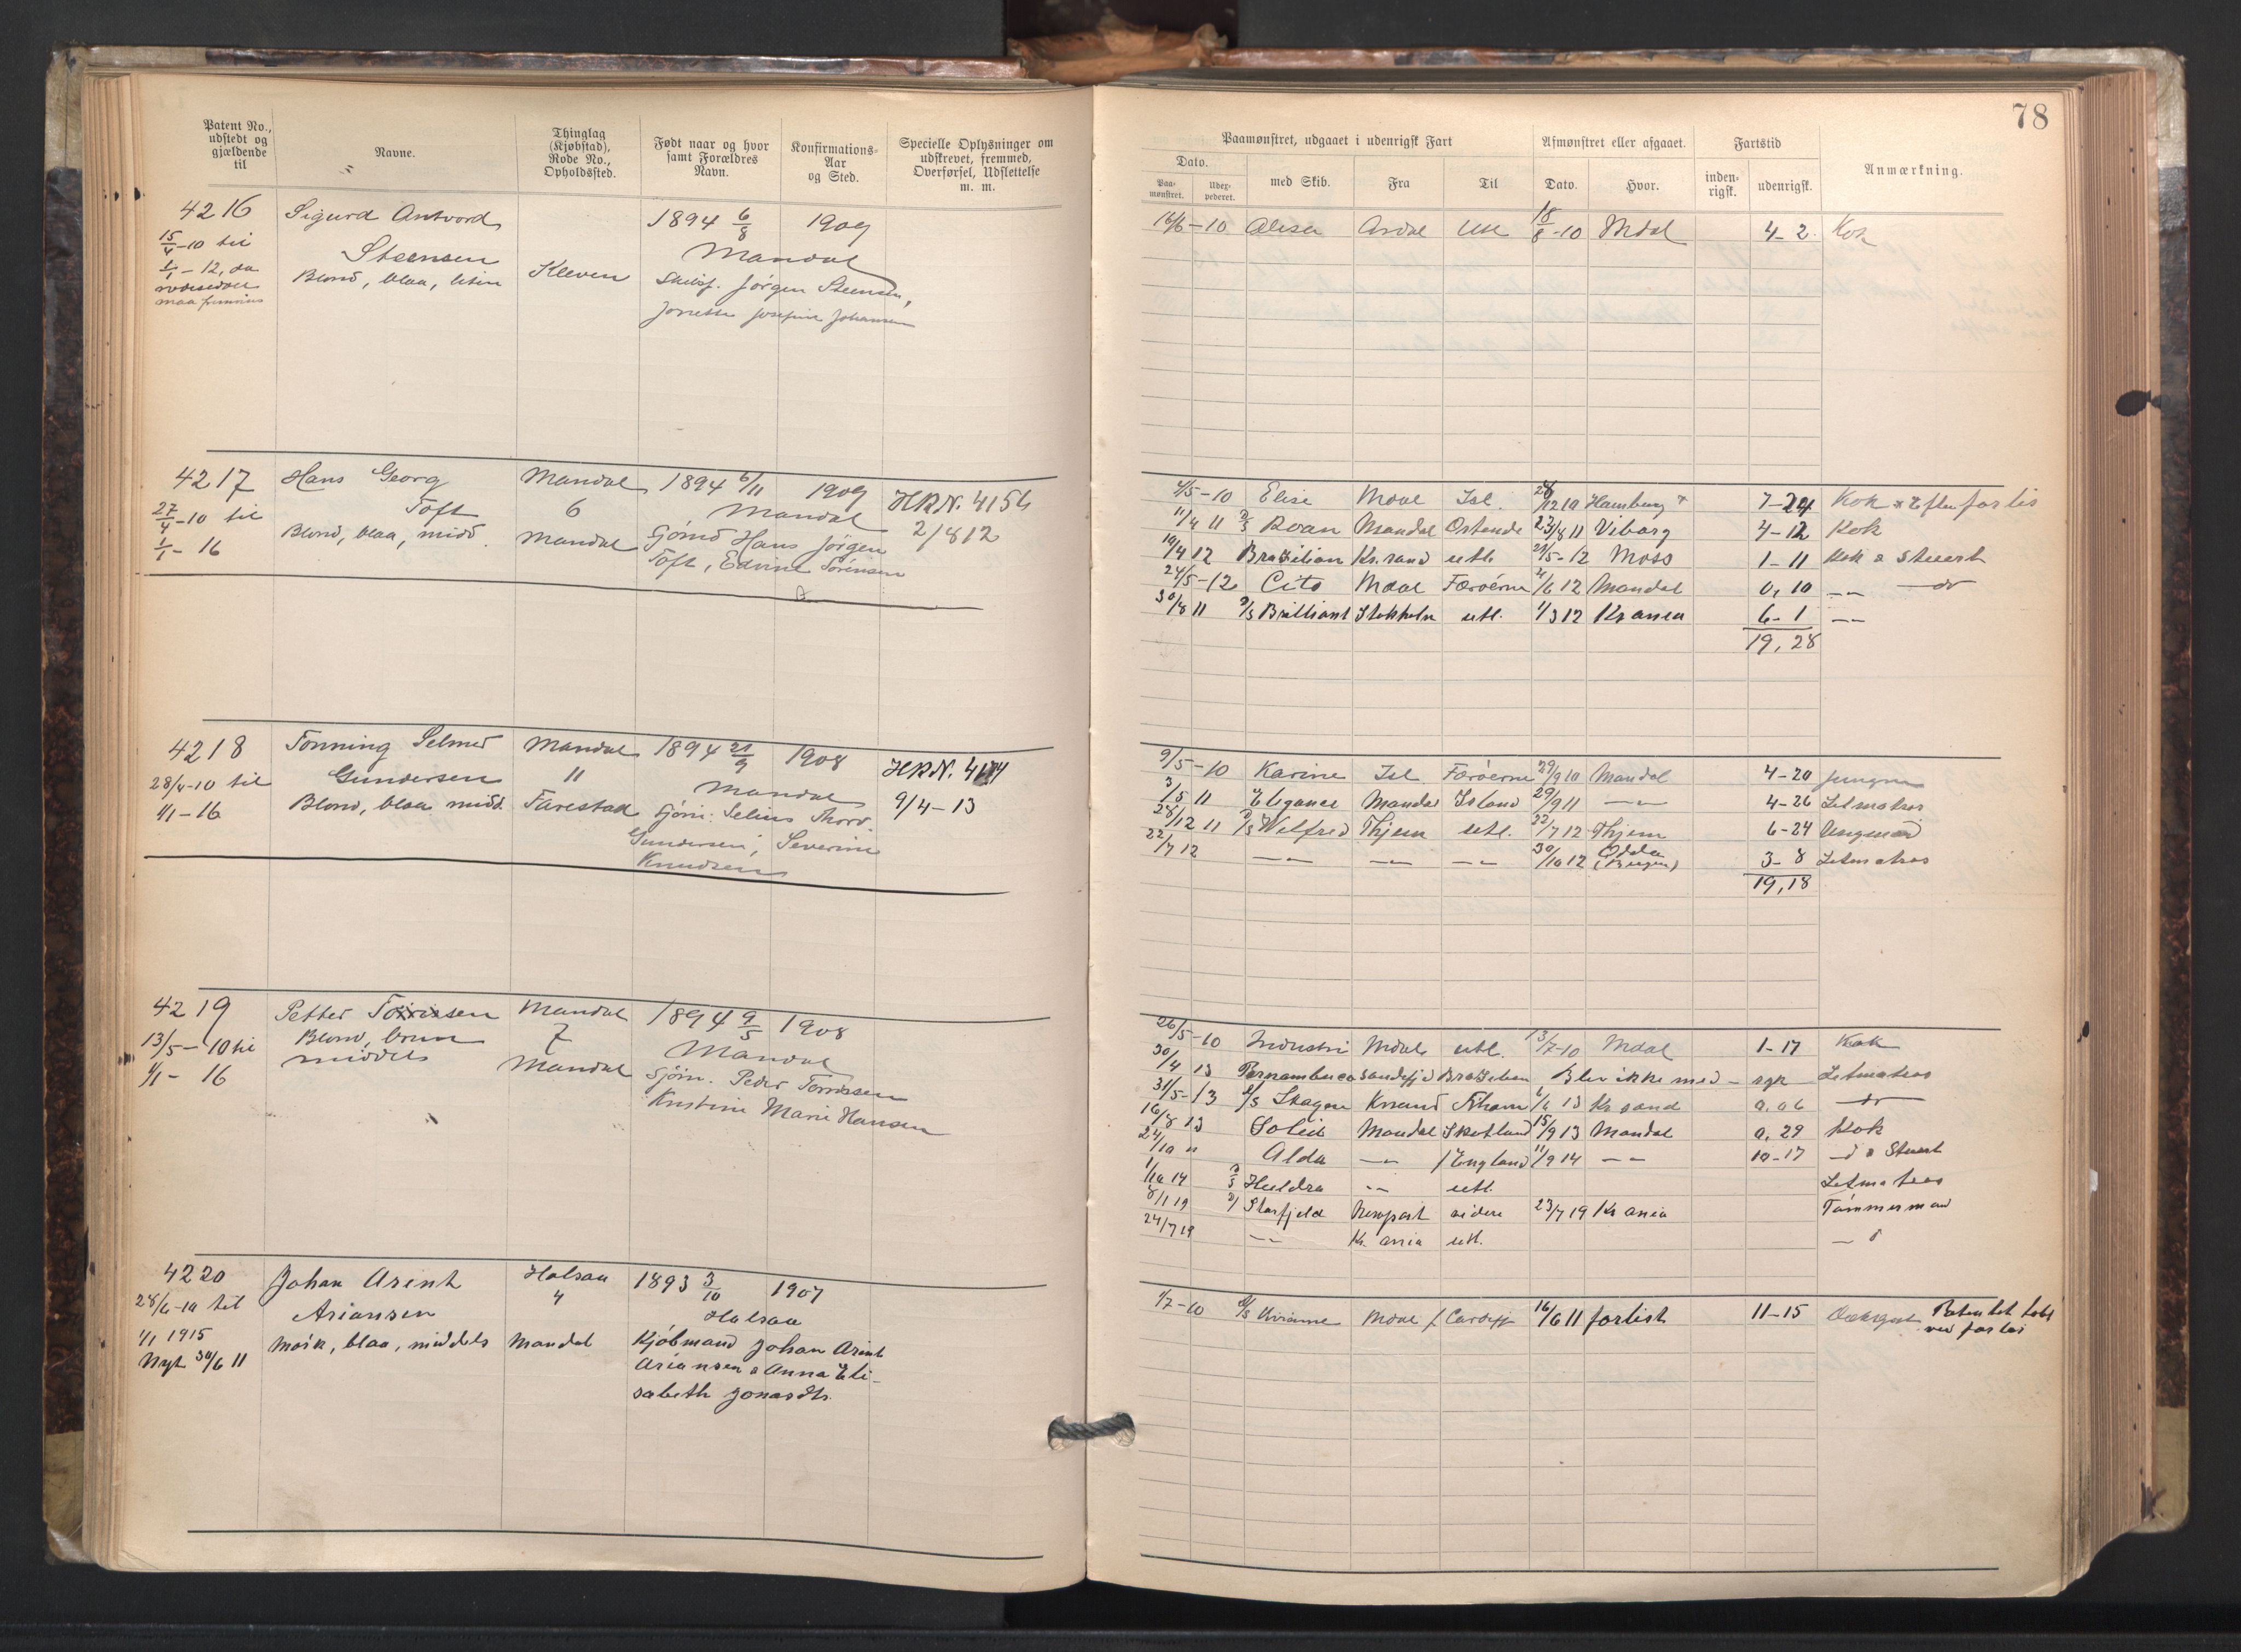 78
Patent No., udstedt og gjældende til
Navne.
Thinglag (Kjøbstad), Rode No., Opholdssted.
Født naar og hvor samt Forældres Navn.
Konfirmations-Aar og Sted.
Specielle Oplysninger om udskrevet, fremmed, Overførsel, Udslettelse m. m.
Paamønstret, udgaaet i udenrigsk Fart
Dato.
Paamønstret.
med Skib.
Fra
Til
Afmønstret eller afgaaet.
Dato.
Hvor.
Fartstid
indenrigsk.
udenrigsk.
Anmærkning.
4216 Sigurd Antvord 1894 6/8 1909
15/4-10 til Steensen Kleven Mandal
1/1-12, da
Blond, blaa, liten
Jørgen Steensen,
Josefine Johansen
16/6-10 Mdal 4-2 Kok
4217 Hans Georg Mandal 1894 6/11 1909 HRN. 4154
27/4-10 til Toft 6 Mandal 2/8 12
1/1-16 Blond, blaa, midd. Mandal Hans Jørgen
Toft, Edvine Sørensen
4/5-10 Elise Mdal Isl. Hamburg 7-24 Kok
11/4 11 Mandal Ostende 23/8 11 Viborg 4-12 Kok
19/4 12 Brazilian Kr.sand utl. Moss 1-11 Kok o Stuert
24/5-12 Cito Mdal Færøerne Mandal 0,10
30/8 11 Brilliant Stokholm utl. 1/3 12 Kr ania 6-1
19,28
4218 Tønning Selmer Mandal 1894 21/9 1908 HRN.
28/4-10 til Gundersen 11 Mandal 9/4-13
1/1-16 Blond, blaa midd. Farestad Selius
Gundersen, Severine
Knudsen
9/5-10 Karine Isl. Færøerne 29/9 10 Mandal 4-20
3/5 11 Elegance Mandal Island 29/9 11 4-26 Letmatros
28/12 11 Wilfred Thjem utl. 22/7 12 Thjem 6-24
22/7 12 30/10 12 Odda (Bergen) 3-8 Letmatros
19,18
4219 Petter Mandal 1894 9/5 1908
13/5-10 til Blond, brun 7 Mandal
1/1-16 middels Mandal Peder
Kristine Marie Hansen
26/5-10 Industri Mdal utl. 13/7-10 Mdal 1-17 Kok
30/4 13 Pernambuco Sandefjd Brazilien Blev ikke med syk Letmatros
31/5-13 Skagen Kr sand
16/8 13 Mandal Skotland 15/9 13 Mandal 0,29 Kok
24/10 Alda England 11/9 14 10-17 Stuert
1/10 14 Huldra utl. Letmatros
8/1 19 Storfjeld Newport videre 23/7 19 Kr ania Tømmermand
24/7 19 Kr. ania utl.
4220 Johan Arint Halsaa 1893 3/10 1907
28/6-10 til Ariansen 4 Halsaa
1/1 1915 Mørk, blaa, middels Mandal Kjøbmand Johan Arint
Nyt 30/6 11 Ariansen o Anna Eli-
sabeth Jonasdtr.
1/7-10 Mdal Cardiff 16/6 11 forlist 11-15 Patentet tabt
ved forlis